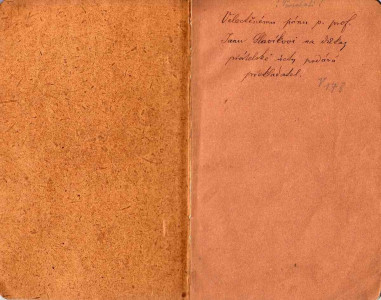 Velectěnému pánu p. prof.
Janu Slavíkovi na důkaz
přátelské úcty podává
překladatel.